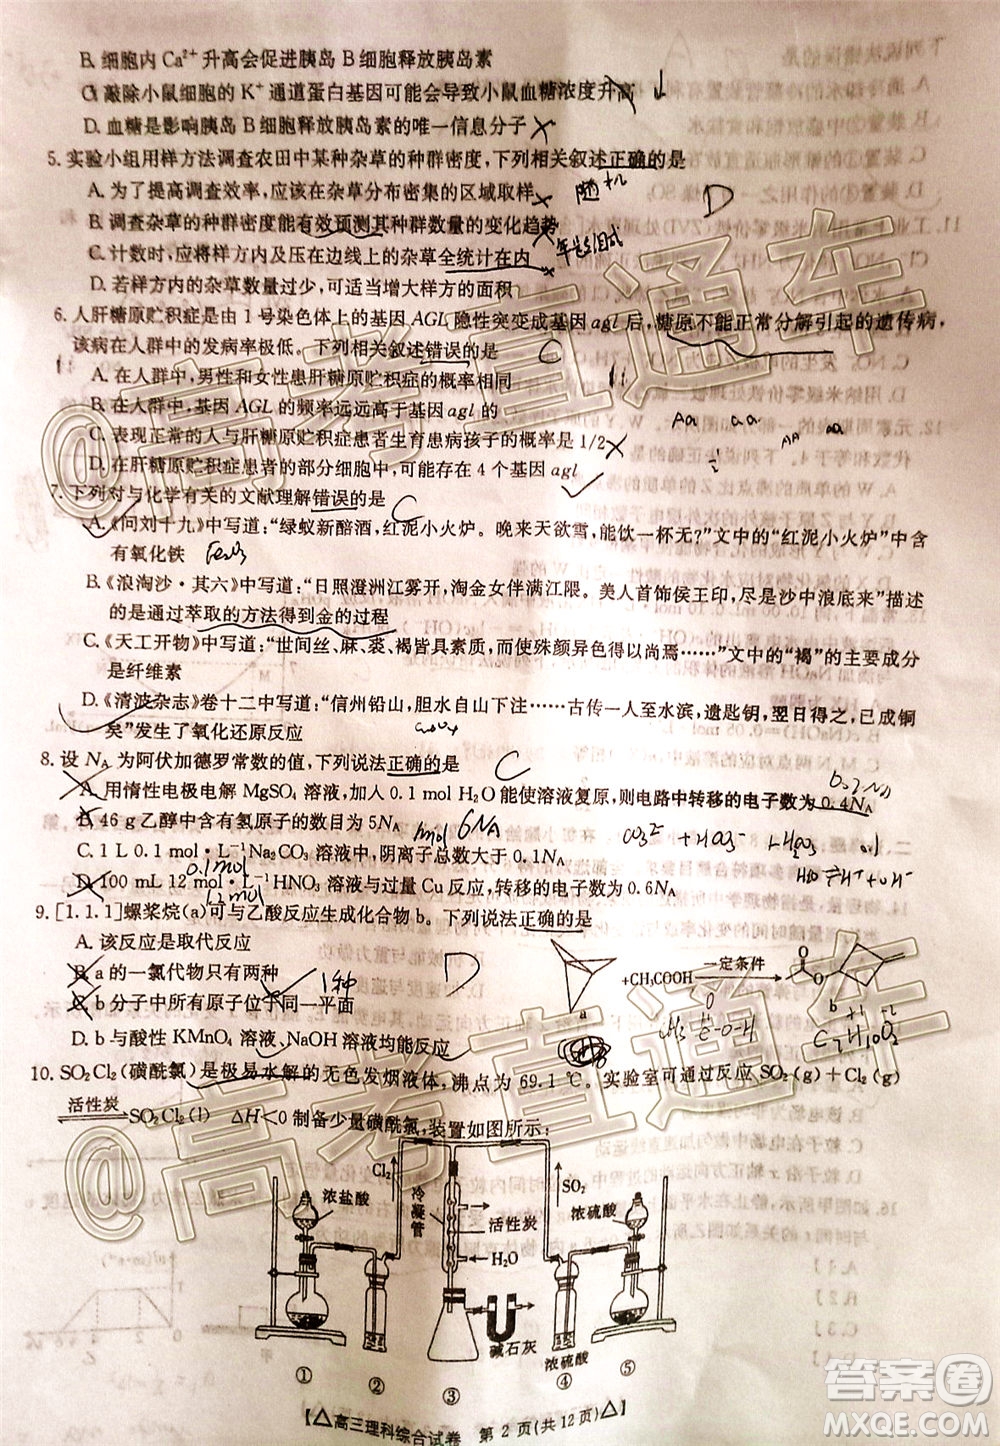 B. 细胞内 Ca²⁺ 升高会促进胰岛 B 细胞释放胰岛素
C. 敲除小鼠细胞的 K⁺ 通道蛋白基因可能会导致小鼠血糖浓度升高
D. 血糖是影响胰岛 B 细胞分泌胰岛素的唯一信息分子
5. 实验小组用样方法调查农田中某种杂草的种群密度,下列相关叙述正确的是
A. 为了提高调查效率,应该在杂草分布密集的区域取样
D
B. 调查杂草的种群密度能有效预测其种群数量的变化趋势
C. 计数时,应将样方内及压在边线上的杂草全统计在内
D. 若样方内的杂草数量过少,可适当增大样方的面积
6. 人肝糖原贮积症是由 1 号染色体上的基因 AGL 隐性突变成基因 agl 后,糖原不能正常分解引起的遗传病,
该病在人群中的发病率极低。下列相关叙述错误的是
C
A. 在人群中,男性和女性患肝糖原贮积症的概率相同
B. 在人群中,基因 AGL 的频率远远高于基因 agl 的
Aa aa AA aa
C. 表现正常的人与肝糖原贮积症患者生育患病孩子的概率是 1/2
D. 在肝糖原贮积症患者的部分细胞中,可能存在 4 个基因 agl
7. 下列对与化学有关的文献理解错误的是
C
A.《问刘十九》中写道:“绿蚁新醅酒,红泥小火炉。晚来天欲雪,能饮一杯无?”文中的“红泥小火炉”中含
有氧化铁 Fe₂O₃
B.《浪淘沙·其六》中写道:“日照澄洲江雾开,淘金女伴满江隈。美人首饰侯王印,尽是沙中浪底来”描述
的是通过萃取的方法得到金的过程
C.《天工开物》中写道:“世间丝、麻、裘、褐皆具素质,而使殊颜异色得以尚焉……”文中的“褐”的主要成分
是纤维素
D.《清波杂志》卷十二中写道:“信州铅山,胆水自山下注……古传一人至水滨,遗匙钥,翌日得之,已成铜
矣”发生了氧化还原反应
CuSO₄
8. 设 NA 为阿伏加德罗常数的值,下列说法正确的是
C
A. 用惰性电极电解 MgSO₄ 溶液,加入 0.1 mol H₂O 能使溶液复原,则电路中转移的电子数为 0.4NA
B. 46 g 乙醇中含有氢原子的数目为 5NA
1mol 6NA
C. 1 L 0.1 mol·L⁻¹ Na₂CO₃ 溶液中,阴离子总数大于 0.1NA
0.1mol
D. 100 mL 12 mol·L⁻¹ HNO₃ 溶液与过量 Cu 反应,转移的电子数为 0.6NA
1.2mol
9. [1.1.1]螺桨烷(a)可与乙酸反应生成化合物 b。下列说法正确的是
A. 该反应是取代反应
D
B. a 的一氯代物只有两种
1种
C. b 分子中所有原子位于同一平面
D. b 与酸性 KMnO₄ 溶液、NaOH 溶液均能反应
+CH₃COOH
一定条件
O
O
a
b
C₇H₁₀O₂
10. SO₂Cl₂(磺酰氯)是极易水解的无色发烟液体,沸点为 69.1 ℃。实验室可通过反应 SO₂(g)+Cl₂(g)
活性炭
SO₂Cl₂(l) ΔH<0 制备少量磺酰氯,装置如图所示:
Cl₂
SO₂
浓盐酸
冷凝管
活性炭
浓硫酸
H₂O
碱石灰
浓硫酸
① ② ③ ④ ⑤
【△高三理科综合试卷 第 2 页(共 12 页)△】
@高考直通车
@高考直通车
答案圈
MXQE.COM